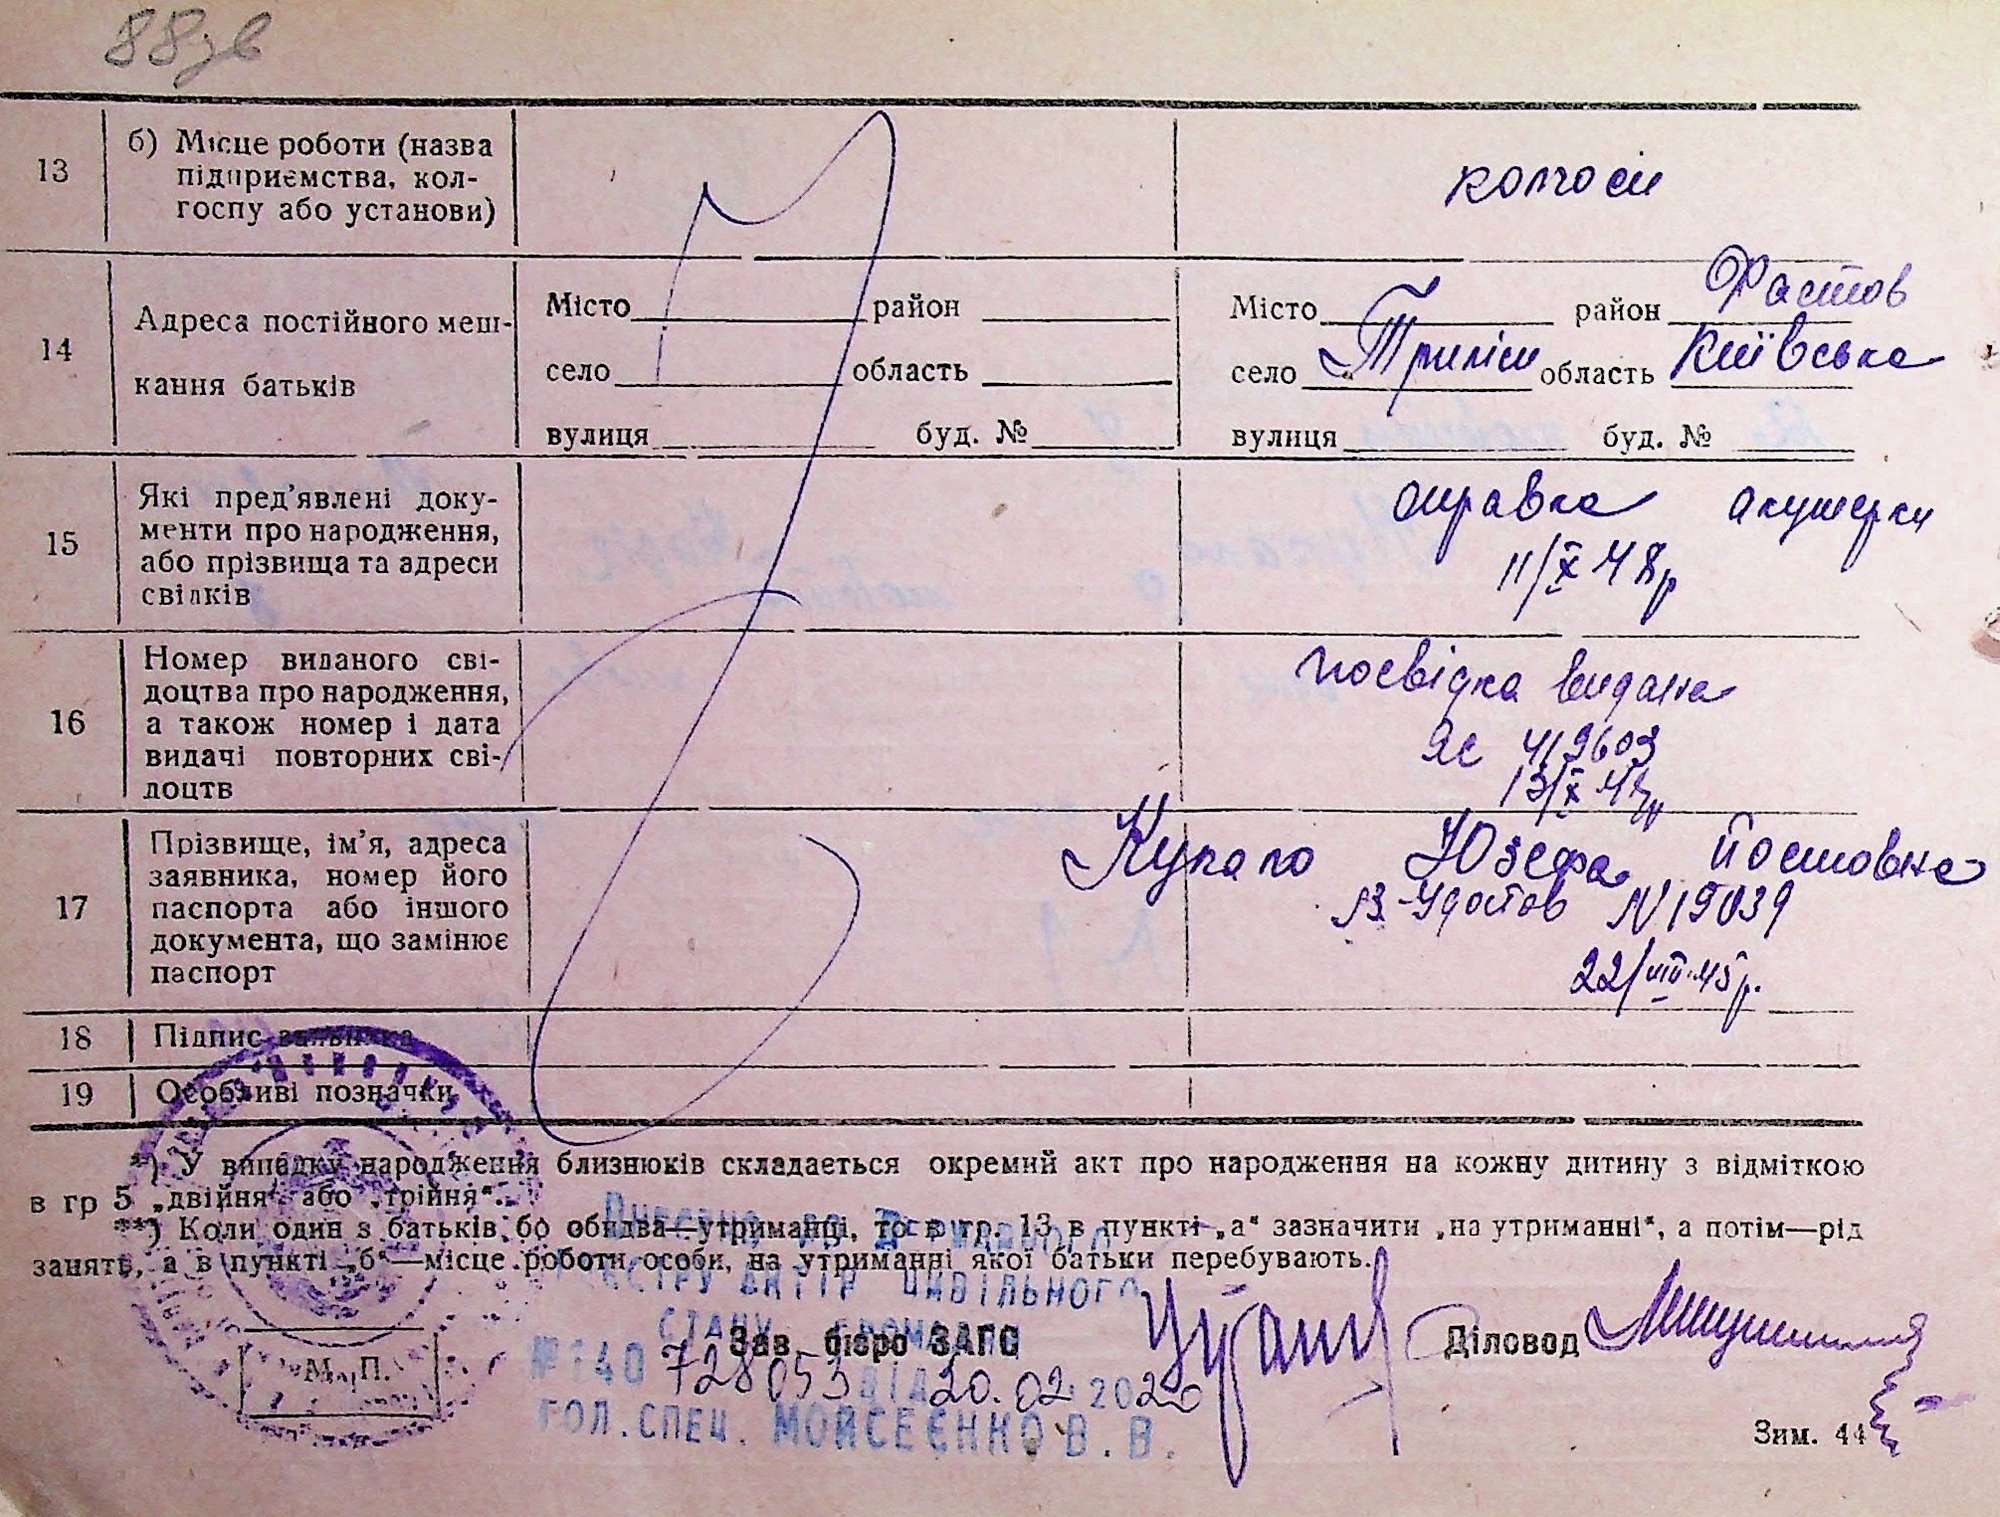 88зв
13
б) Місце роботи (назва
підприємства, кол-
госпу або установи)
колгосп
14
Адреса постійного меш-
кання батьків
Місто район
село область
вулиця буд. №
Місто район Фастов
село Триліси область Київська
вулиця буд. №
15
Які пред'явлені доку-
менти про народження,
або прізвища та адреси
свідків
справка акушерки
11/X 48р
16
Номер виданого сві-
доцтва про народження,
а також номер і дата
видачі повторних сві-
доцтв
посвідка видана
ЯС 419603
13/X 48р
17
Прізвище, ім'я, адреса
заявника, номер його
паспорта або іншого
документа, що замінює
паспорт
Юзефа
N 19039
22/VIII-45р.
18
Підпис заявника
19
Особливі позначки
*) У випадку народження близнюків складається окремий акт про народження на кожну дитину з відміткою
в гр 5 „двійня“ або „трійня“.
**) Коли один з батьків бо обидва—утриманці, то в гр. 13 в пункті „а“ зазначити „на утриманні“, а потім—рід
занять, а в пункті „б“—місце роботи особи, на утриманні якої батьки перебувають.
Внесено до Державного
реєстру актів цивільного
стану громадян
Зав. бюро ЗАГС
Діловод
№ 140 728053 від 20.02.2020
ГОЛ.СПЕЦ. МОЙСЕЄНКО В.В.
М. П.
Зим. 44